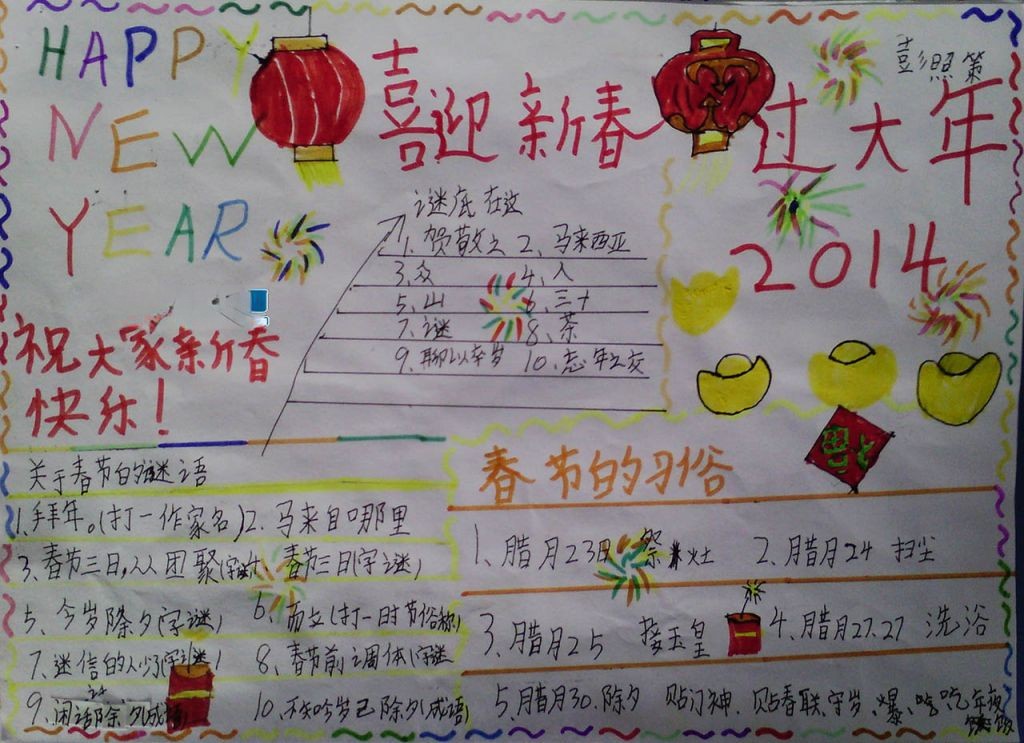 HAPPY
NEW
YEAR
喜迎新春
过大年
彭照第
2014
祝大家新春
快乐！
谜底在这
1、贺敬之 2、马来西亚
3、众 4、人
5、山 6、三十
7、谜 8、茶
9、聊以卒岁 10、忘年之交
关于春节的谜语
1、拜年。(打一作家名) 2、马来自哪里
3、春节三日,人人团聚(字谜) 春节三日(字谜)
5、今岁除夕(字谜) 6、而立(打一时节俗称)
7、迷信的人少(字谜) 8、春节前调休(字谜
9、闲话除夕(成语) 10、除夕(成语)
春节的习俗
福
1、腊月23日 祭灶 2、腊月24 扫尘
3、腊月25 接玉皇 4、腊月27.27 洗浴
5、腊月30.除夕 贴门神、贴春联、守岁、爆、吃年夜
饭